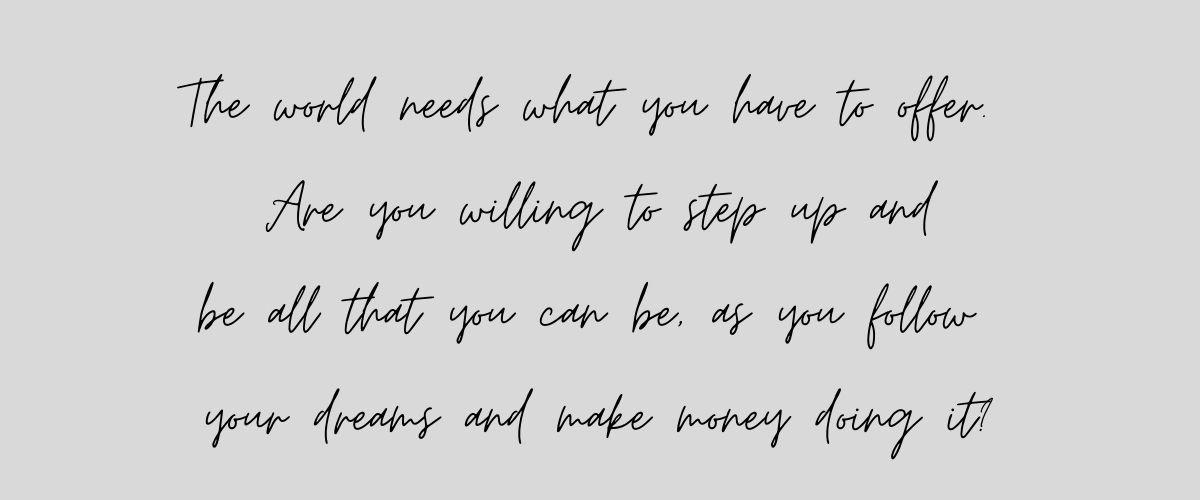 The world needs what you have to offer.
Are you willing to step up and
be all that you can be, as you follow
your dreams and make money doing it?